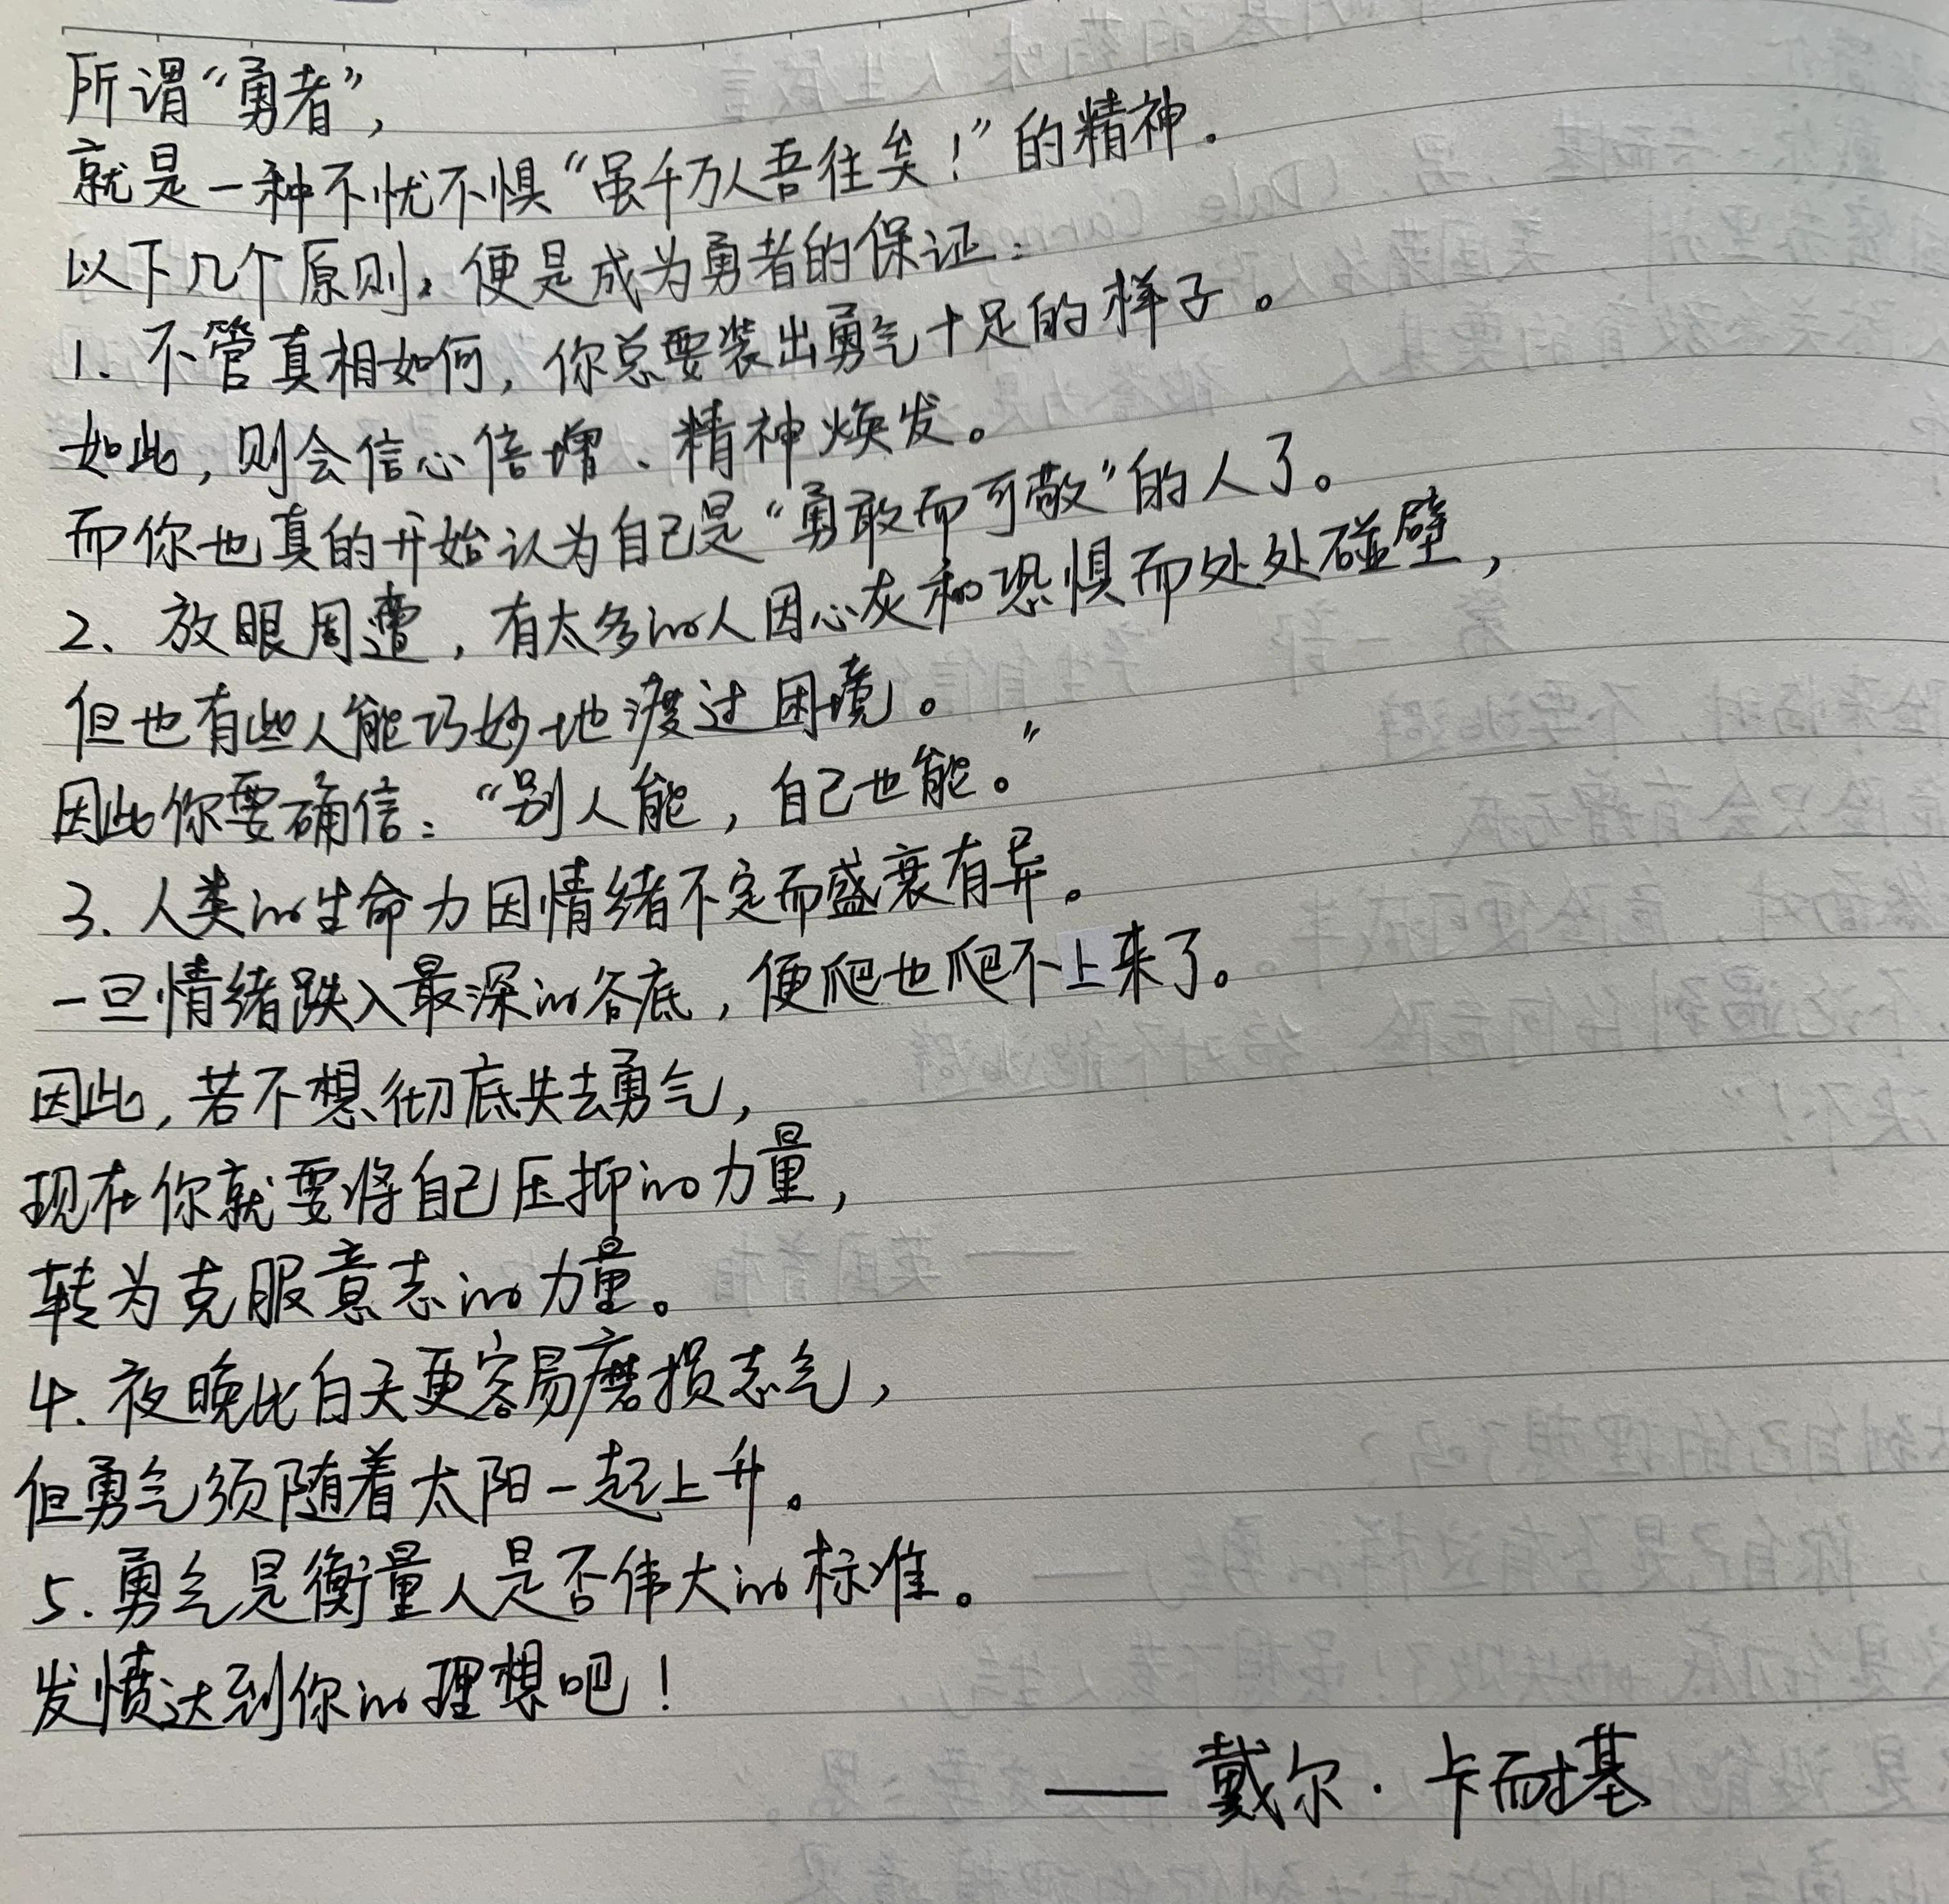 所谓“勇者”,
就是一种不忧不惧“虽千万人吾往矣！”的精神。
以下几个原则，便是成为勇者的保证：
1、不管真相如何，你总要装出勇气十足的样子。
如此，则会信心倍增、精神焕发。
而你也真的开始认为自己是“勇敢而可敬”的人了。
2、放眼周遭，有太多的人因心灰和恐惧而处处碰壁，
但也有些人能巧妙地渡过困境。
因此你要确信：“别人能，自己也能。”
3、人类的生命力因情绪不定而盛衰有异。
一旦情绪跌入最深的谷底，便爬也爬不上来了。
因此，若不想彻底失去勇气，
现在你就要将自己压抑的力量，
转为克服意志的力量。
4、夜晚比白天更容易磨损志气，
但勇气须随着太阳一起上升。
5、勇气是衡量人是否伟大的标准。
发愤达到你的理想吧！
—— 戴尔·卡耐基